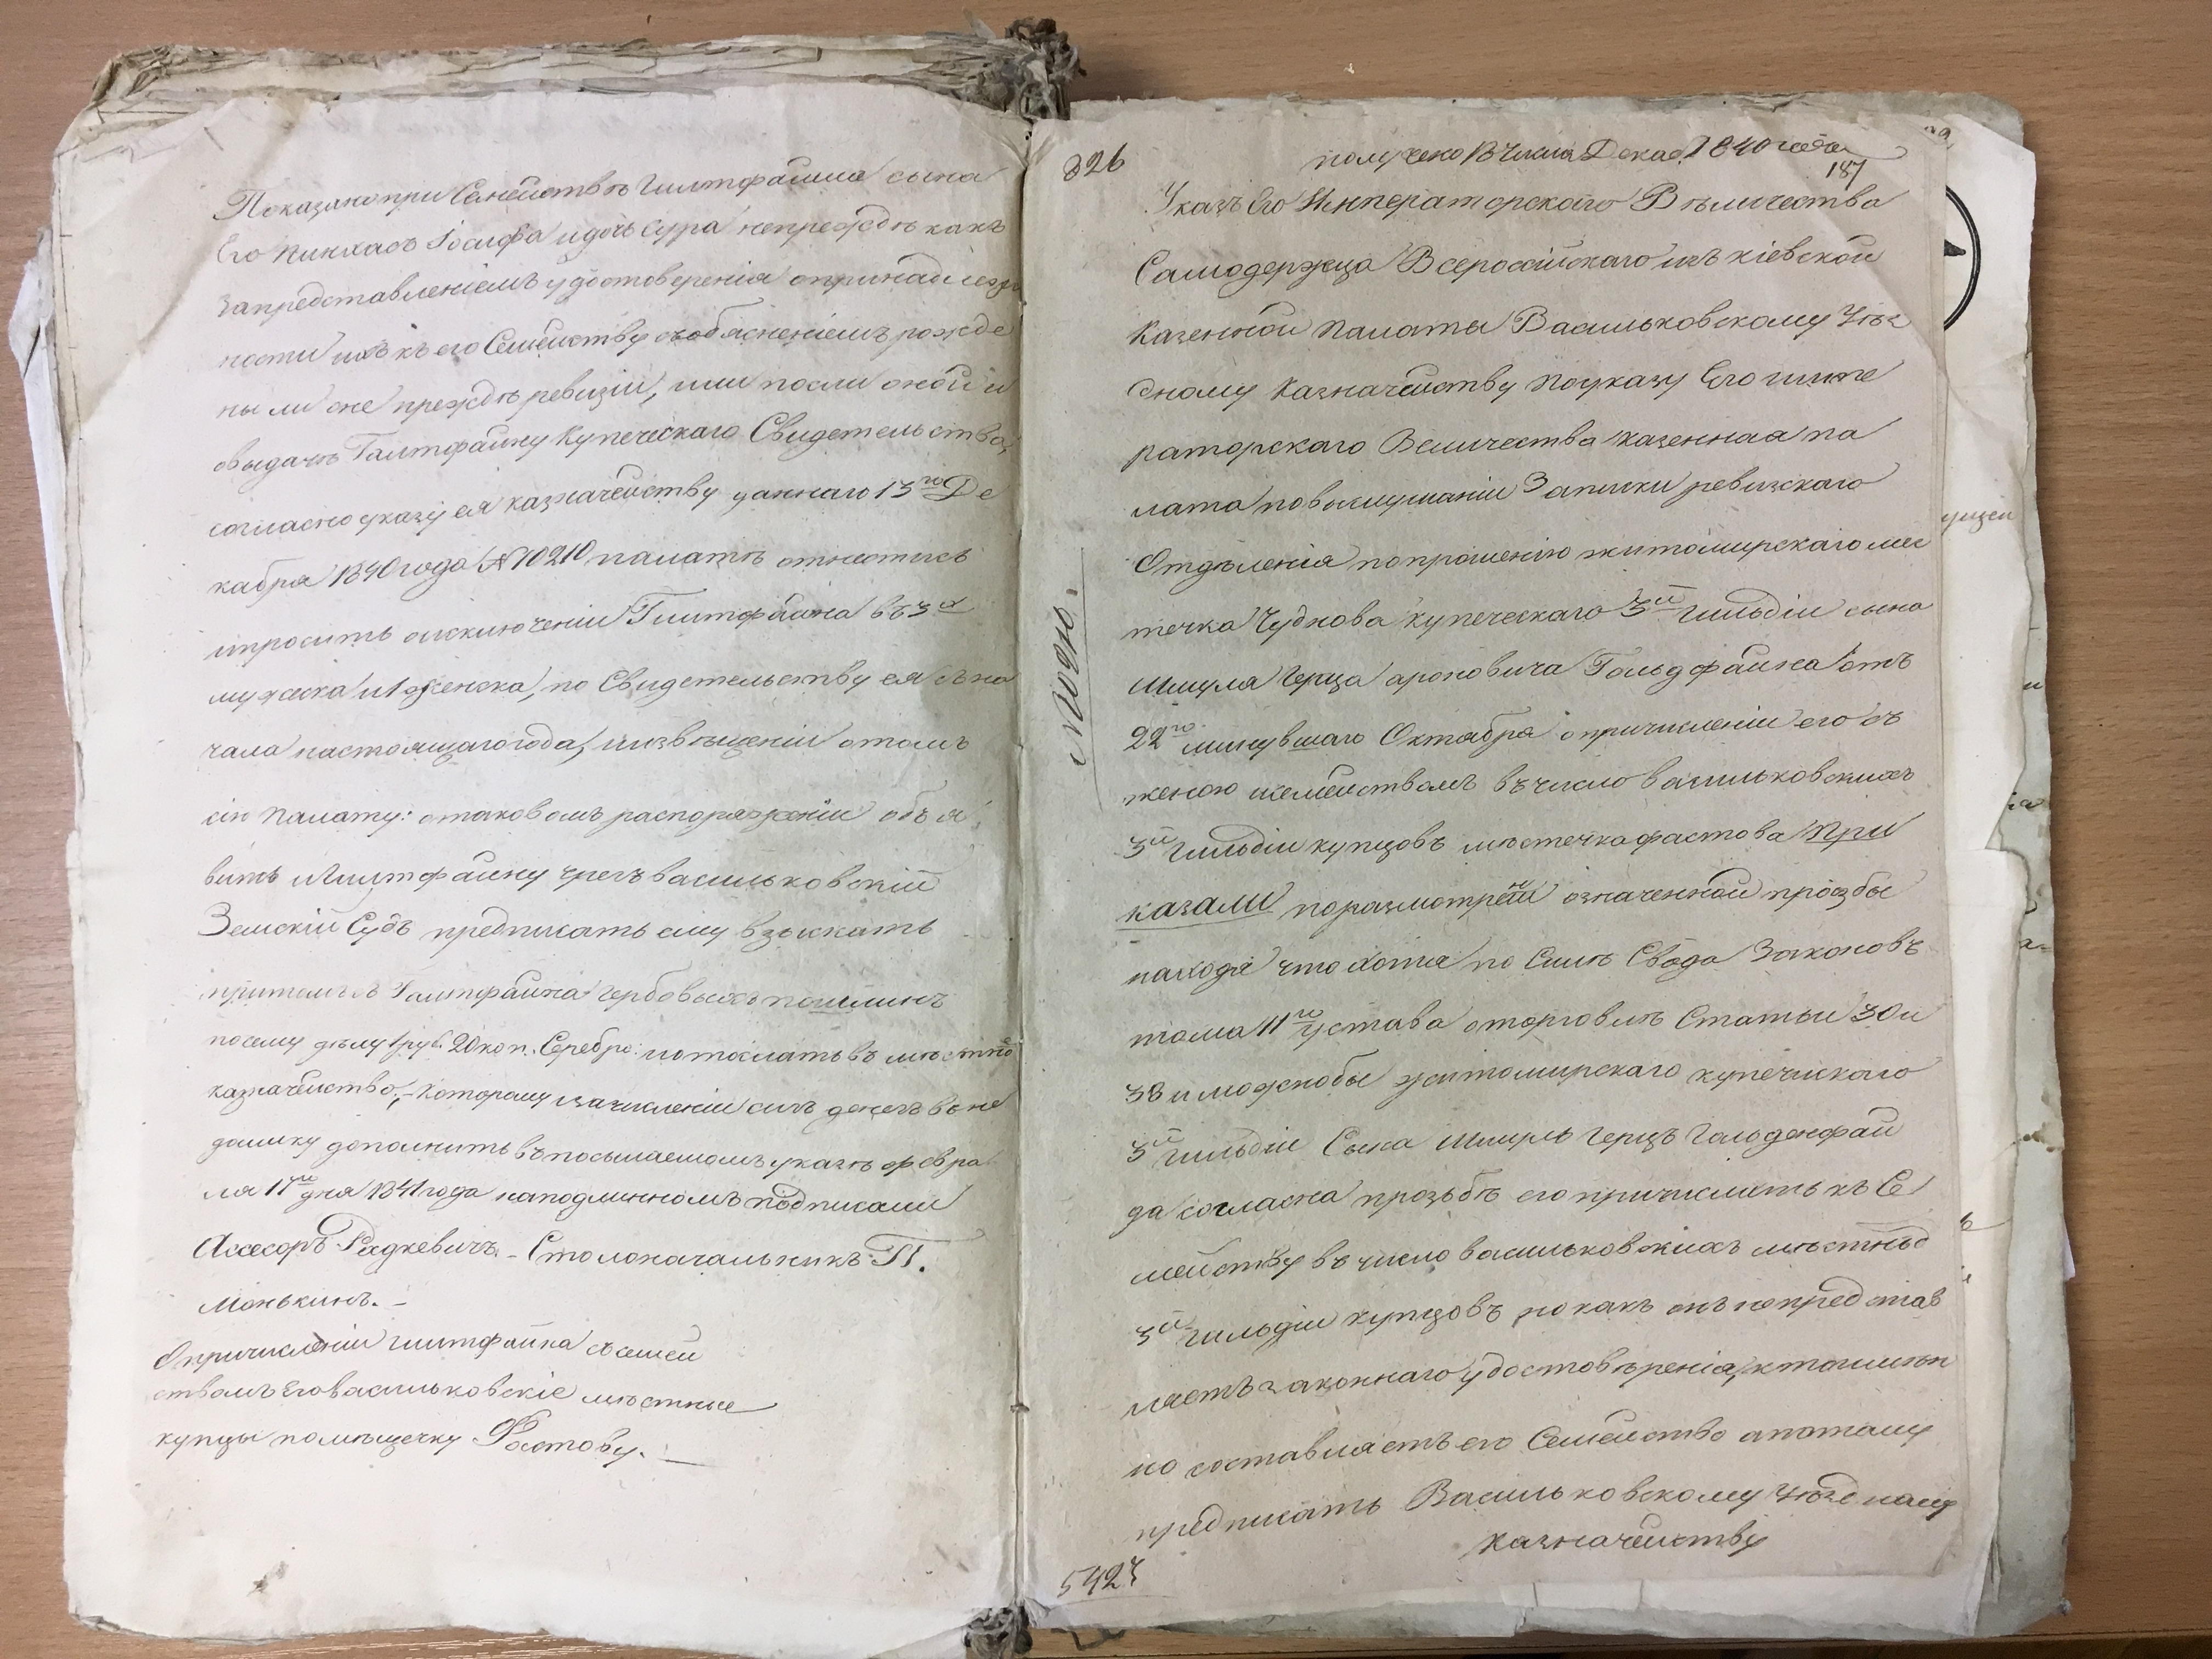 Показано при Семействѣ Гилтфайна сына
Его Пинхаса Іосифа и дочь Сура непрежде какъ
запредставленіемъ удостоверенія опринадлеж
ности ихъ къ его Семейству собясненіемъ рожде
ны ли оне преждѣ ревизіи, или посли оной и
овыдачѣ Галтфайну Купеческаго Свидетельства,
согласно указу ея казначейству данаго 13го Де
кабря 1840 года № 10210 палатѣ отнестись
ипросить оисключеніи Гилтфайна въ 3х
мужеска и 1 женска, по Свидетельству ея съ на
чала настоящаго года, иизвѣщеніи отомъ
сію палату: отаковомъ распоряженіи объя
вить Гилтфайну чрезъ васильковскій
Земскій Судъ предписать ему взыскать
притомъ съ Галтфайна гербовыхъ пошлинъ
посему дѣлу 1 руб. 20 коп. Серебро: иотослать въ мѣстно
казначейство;- которому изачисленіи сихъ денегъ въ не
доимку дополнить въ посылаемомъ указѣ февра
ля 17го дня 1841 года наподлинномъ подписали
Ассесоръ Радкевичъ.- Столоначальникъ П.
Монькинъ.-
Опричисленіи гилтфайна съ семей
ствомъ его васильковскіе мѣстные
купцы помѣщечку Фастову.-
326
получено 13 числа Декаб. 1840 года
187
Указъ Его Императорского Вѣличества
Самодержца Всеросійскаго изъ кіевской
Казенной Палаты Васильковскому Уѣз
дному Казначейству По указу Его импе
раторскаго Величества казенная па
лата по выслушаніи Записки ревизскаго
Отдѣленія по прошенію житомирскаго мес
течка Чуднова купеческаго 3й гильдіи сына
Шмуля Герца ароновича Гольдфайна отъ
22го минувшаго Октября о причисленіи его съ
женою исемействомъ въ число васильковскихъ
3й гильдіи купцовъ мѣстечка фастова При
казали по размотреніи означенной прозбы
находя что хотя по Силѣ Свода Законовъ
тома 11го устава о торговлѣ Статьи 30 и
38 и можно бы житомирскаго купеческаго
3й гильдіи Сына Шмуль Герцъ Гольденфай
да согласна прозьбѣ его причислить къ Се
мейству въ число васильковскихъ мѣстныхъ
3й гильдіи купцовъ но какъ онъ непредстав
ляетъ законнаго удостовѣренія, кто имен
но составляетъ его Семейство апотому
предписать Васильковскому Уѣздному
Казначейству
№ 10210.
5424